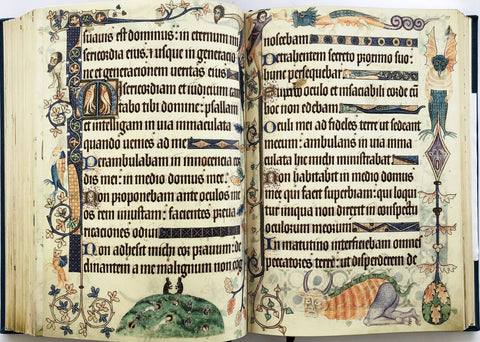 suauis est dominus : in eternum mi
sericordia eius : et usque in generatio
ne et generacionem ueritas eius
Misericordiam et iudicium can
tabo tibi domine : psallam
et intelligam in uia inmaculata
quando uenies ad me
Perambulabam in innocencia cor
dis mei : in medio domus mee
Non proponebam ante oculos me
os rem iniustam : facientes preua
ricaciones odiui
Non adhesit michi cor prauum : de
clinantem a me malignum non cog
noscebam
Detrahentem secreto proximo suo :
hunc persequebar
Superbo oculo et insaciabili corde cū
hoc non edebam
Oculi mei ad fideles terre ut sedeant
mecum : ambulans in uia inma
culata hic michi ministrabat
Non habitabit in medio domus
mee qui facit superbiam : qui loqui
tur iniqua non direxit in conspectu
oculorum meorum
In matutino interficiebam omnes
peccatores terre : ut disperderem de